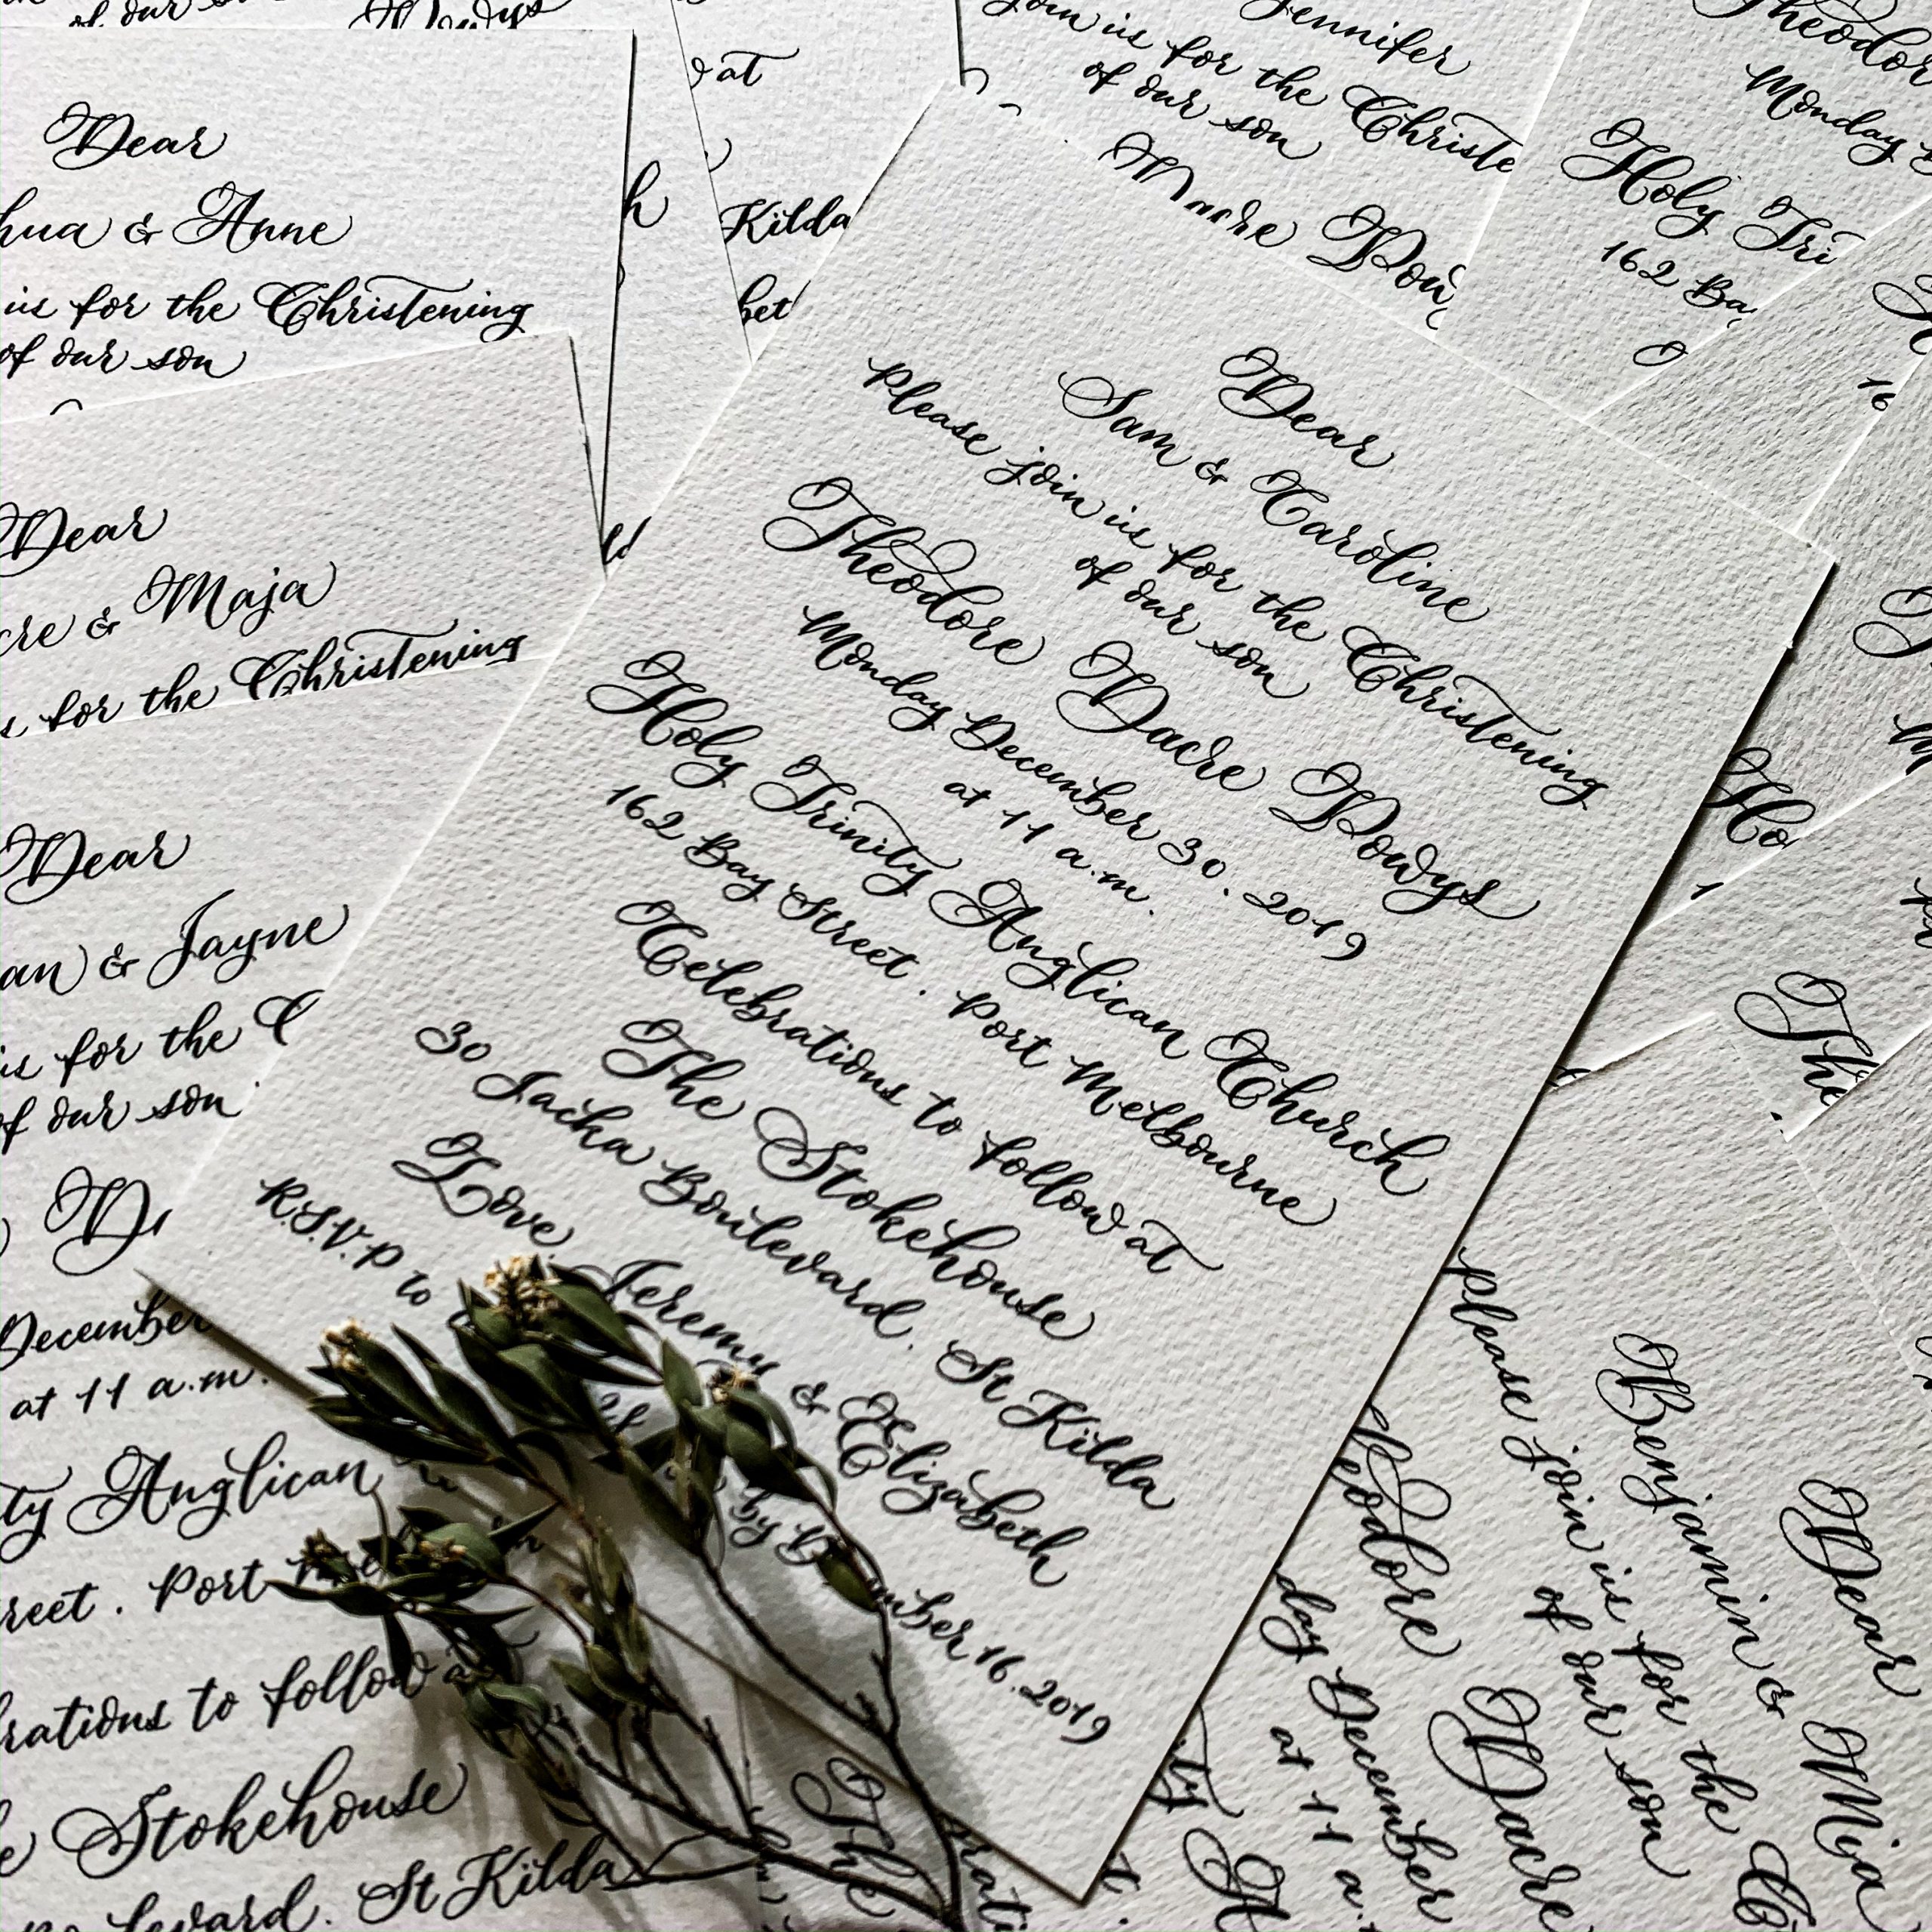 Dear
Sam & Caroline
Please join us for the Christening
of our son
Theodore Dacre Powys
Monday December 30. 2019
at 11 a.m.
Holy Trinity Anglican Church
162 Bay Street. Port Melbourne
Celebrations to follow at
The Stokehouse
30 Jacka Boulevard. St Kilda
Love Jeremy & Elizabeth
R.S.V.P to
by
16.2019
Dear
& Anne
us for the Christening
of our son
Dear
& Maja
for the Christening
Dear
& Jayne
is for the
of our son
December
at 11 a.m.
Anglican
Port
to follow
Stokehouse
St Kilda
at
Kilda
Jennifer
join us for the
of our son
Monday
Holy
162
Dear
Benjamin & Mia
Please join us for the
of our son
Dacre
December
at 11
The